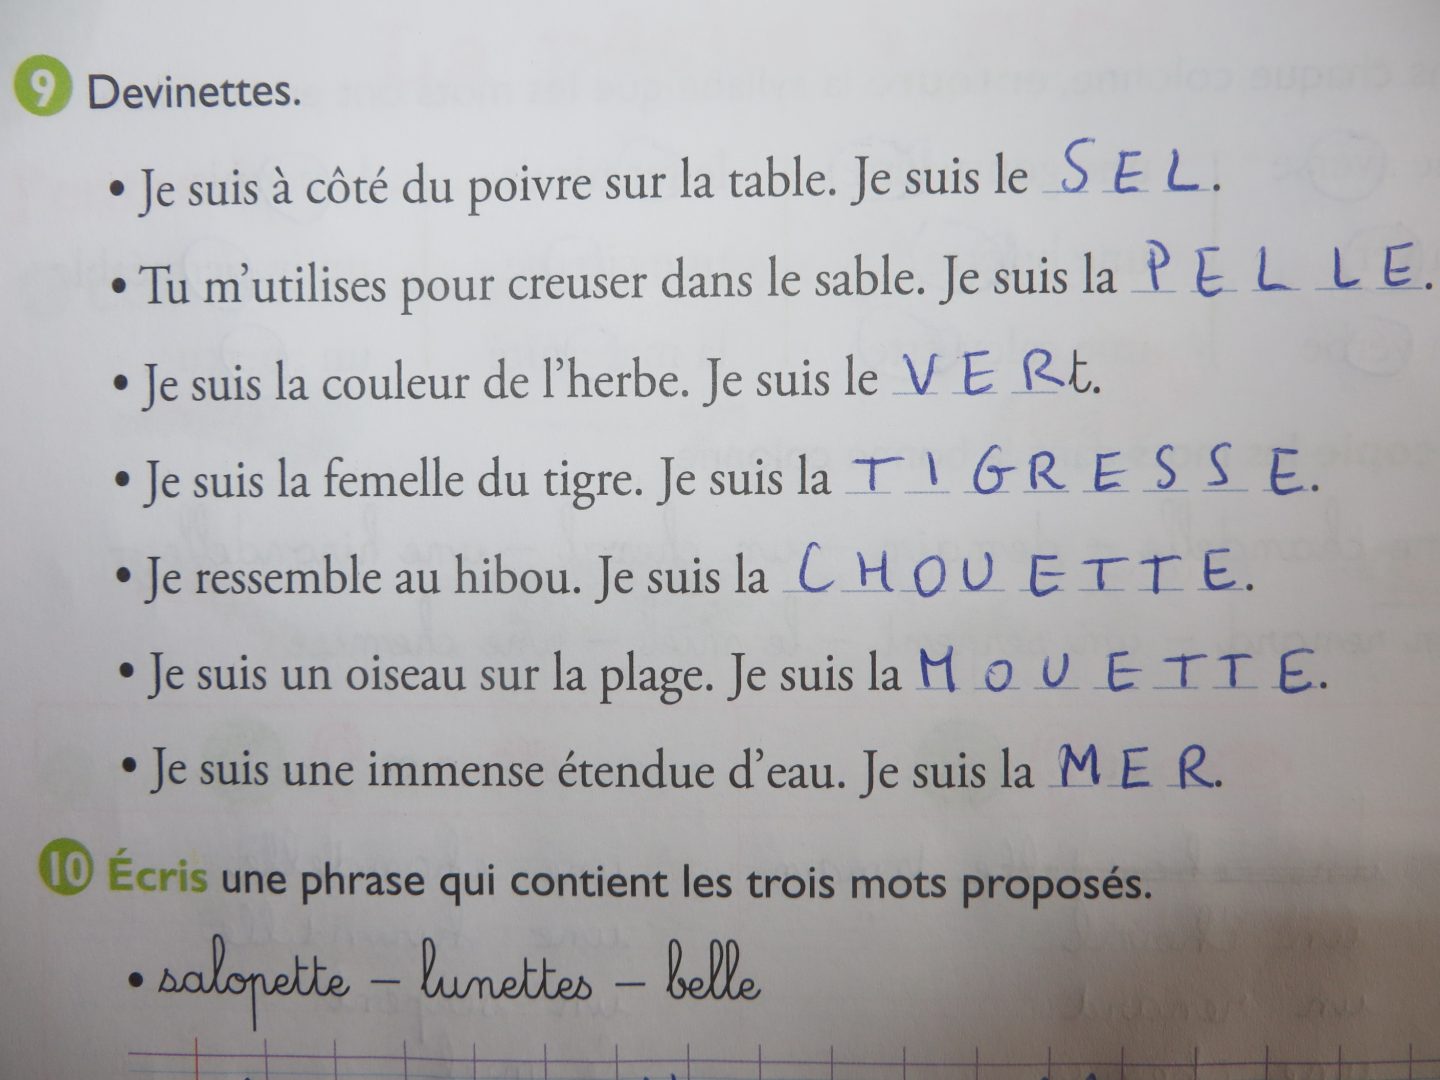 9 Devinettes.
• Je suis à côté du poivre sur la table. Je suis le SEL.
• Tu m'utilises pour creuser dans le sable. Je suis la PELLE.
• Je suis la couleur de l'herbe. Je suis le VERt.
• Je suis la femelle du tigre. Je suis la TIGRESSE.
• Je ressemble au hibou. Je suis la CHOUETTE.
• Je suis un oiseau sur la plage. Je suis la MOUETTE.
• Je suis une immense étendue d'eau. Je suis la MER.
10 Écris une phrase qui contient les trois mots proposés.
• salopette – lunettes – belle